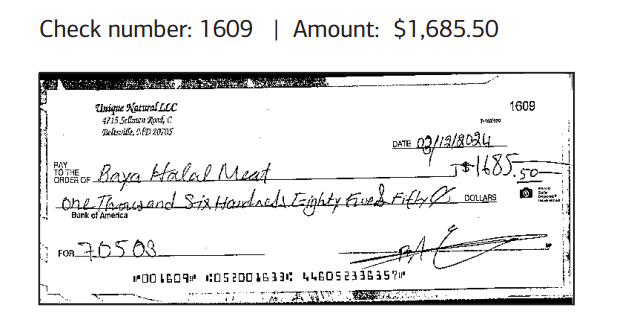 Check number: 1609 | Amount: $1,685.50
Unique Natural LLC
4715 Sellman Road, C
Beltsville, MD 20705
1609
DATE 03/12/2024
PAY TO THE ORDER OF Baya Halal Meat $1685.50
One Thousand Six Hundreds Eighty Five & Fifty DOLLARS
Bank of America
FOR 70503
⑈001609⑈ ⑆052001633⑆ 446052336357⑈